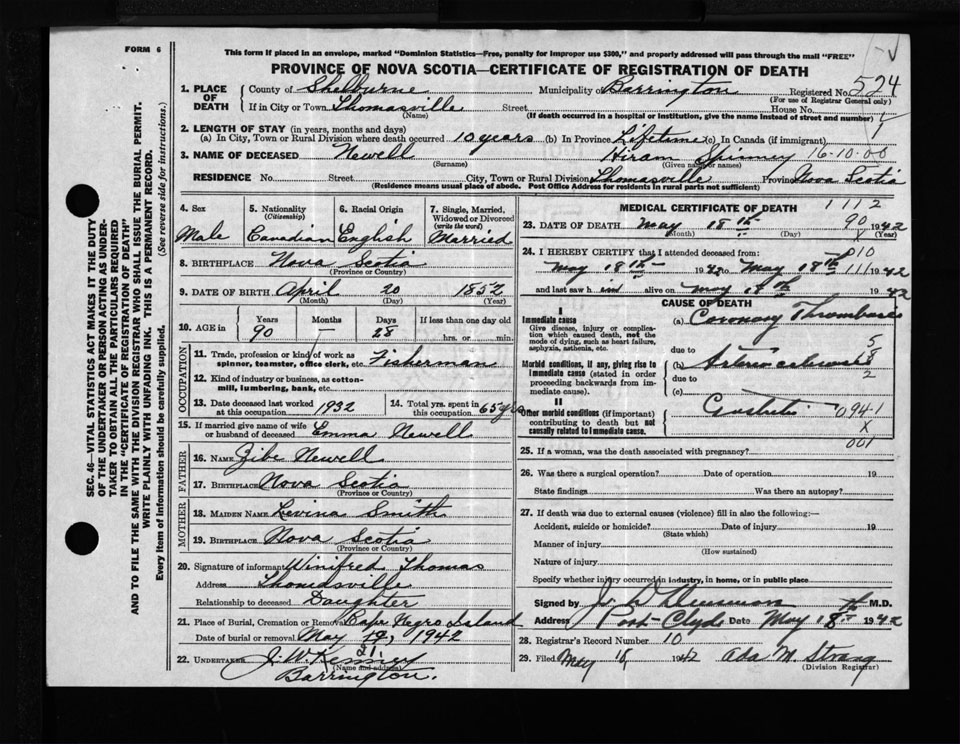 FORM 6
This form if placed in an envelope, marked "Dominion Statistics—Free, penalty for improper use $300," and properly addressed will pass through the mail "FREE"
PROVINCE OF NOVA SCOTIA—CERTIFICATE OF REGISTRATION OF DEATH
1. PLACE OF DEATH
County of Shelburne Municipality of Barrington Registered No. 524
(For use of Registrar General only)
If in City or Town Thomasville Street House No.
(Name) (If death occurred in a hospital or institution, give the name instead of street and number)
2. LENGTH OF STAY (in years, months and days)
(a) In City, Town or Rural Division where death occurred 10 years (b) In Province Lifetime (c) In Canada (if immigrant)
3. NAME OF DECEASED Newell Hiram Spinney 16-10-00
(Surname) (Given name or names)
RESIDENCE No. Street City, Town or Rural Division Thomasville Province Nova Scotia
(Residence means usual place of abode. Post Office Address for residents in rural parts not sufficient)
4. Sex
Male
5. Nationality (Citizenship)
Canadian
6. Racial Origin
English
7. Single, Married, Widowed or Divorced (write the word)
Married
8. BIRTHPLACE Nova Scotia
(Province or Country)
9. DATE OF BIRTH April 20 1852
(Month) (Day) (Year)
10. AGE in Years Months Days If less than one day old
90 — 28 hrs. or min.
OCCUPATION
11. Trade, profession or kind of work as spinner, teamster, office clerk, etc. Fisherman
12. Kind of industry or business, as cotton-mill, lumbering, bank, etc.
13. Date deceased last worked at this occupation 1932
14. Total yrs. spent in this occupation 65 yrs
15. If married give name of wife or husband of deceased Emma Newell
FATHER
16. NAME Zibe Newell
17. BIRTHPLACE Nova Scotia
(Province or Country)
MOTHER
18. MAIDEN NAME Levina Smith
19. BIRTHPLACE Nova Scotia
(Province or Country)
20. Signature of informant Winifred Thomas
Address Thomasville
Relationship to deceased Daughter
21. Place of Burial, Cremation or Removal Cape Negro Island
Date of burial or removal May 21, 1942
22. UNDERTAKER J. W. Kenney
(Name and address)
Barrington.
MEDICAL CERTIFICATE OF DEATH 1112
23. DATE OF DEATH May 18th 90 1942
(Month) (Day) X (Year)
24. I HEREBY CERTIFY that I attended deceased from: 010
May 18th 1942 to May 18th 111 1942
and last saw h im alive on May 18th 1942
CAUSE OF DEATH
I
Immediate cause
Give disease, injury or complication which caused death, not the mode of dying, such as heart failure, asphyxia, asthenia, etc.
(a) Coronary Thrombosis
due to
Morbid conditions, if any, giving rise to Immediate cause (stated in order proceeding backwards from immediate cause).
(b)
5
8
2
due to
(c)
II
Other morbid conditions (if important) contributing to death but not causally related to immediate cause.
094-1
X
001
25. If a woman, was the death associated with pregnancy?
26. Was there a surgical operation? Date of operation 19
State findings Was there an autopsy?
27. If death was due to external causes (violence) fill in also the following:—
Accident, suicide or homicide? Date of injury 19
(State which)
Manner of injury
(How sustained)
Nature of injury
Specify whether injury occurred in industry, in home, or in public place
Signed by M.D.
Address Port Clyde Date May 18th 1942
28. Registrar's Record Number 10
29. Filed May 18 1942 Ada M. Strang
(Division Registrar)
SEC. 46—VITAL STATISTICS ACT MAKES IT THE DUTY
OF THE UNDERTAKER OR PERSON ACTING AS UNDER-
TAKER TO OBTAIN ALL THE PARTICULARS REQUIRED
IN THE "CERTIFICATE OF REGISTRATION OF DEATH"
AND TO FILE THE SAME WITH THE DIVISION REGISTRAR WHO SHALL ISSUE THE BURIAL PERMIT.
WRITE PLAINLY WITH UNFADING INK. THIS IS A PERMANENT RECORD.
Every item of information should be carefully supplied. (See reverse side for instructions.)